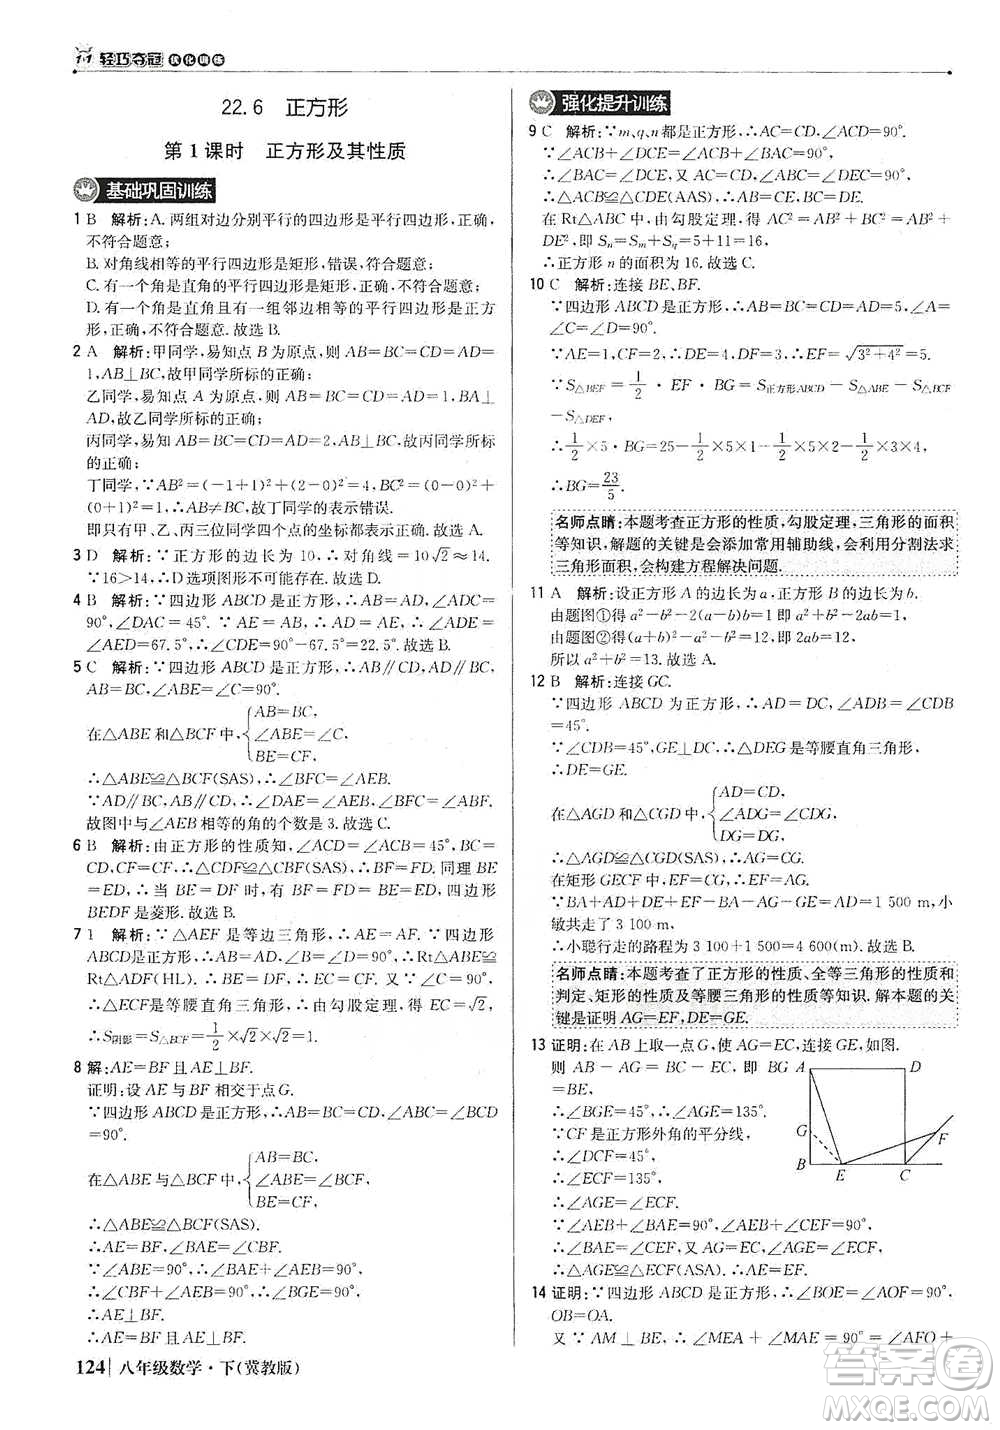 轻巧夺冠 优化训练
22.6 正方形
第1课时 正方形及其性质
基础巩固训练
1 B 解析:A.两组对边分别平行的四边形是平行四边形,正确,
不符合题意;
B.对角线相等的平行四边形是矩形,错误,符合题意;
C.有一个角是直角的平行四边形是矩形,正确,不符合题意;
D.有一个角是直角且有一组邻边相等的平行四边形是正方
形,正确,不符合题意.故选B.
2 A 解析:甲同学,易知点B为原点,所以AB=BC=CD=AD=
1,AB⊥BC,故甲同学所标的正确;
乙同学,易知点A为原点,所以AB=BC=CD=AD=1,BA⊥
BC,故乙同学所标的正确;
丙同学,易知AB=BC=CD=AD=2,AB⊥BC,故丙同学所标
的正确;
丁同学,∵AB²=(-1+1)²+(2-0)²=4,BC²=(-1-0)²+
(0+1)²=2,∴AB≠BC,故丁同学所标的表示错误.
即只有甲、乙、丙三位同学四个点的坐标都表示正确.故选A.
3 D 解析:∵正方形的边长为10,∴对角线=10√2≈14.
∵16>14,∴D选项图形不可能剪出.故选D.
4 B 解析:∵四边形ABCD是正方形,∴AB=AD,∠ADC=
90°,∠DAC=45°.∵AE=AB,∴AD=AE,∴∠ADE=
∠AED=67.5°,∴∠CDE=90°-67.5°=22.5°.故选B.
5 C 解析:∵四边形ABCD是正方形,∴AB∥CD,AD∥BC,
AB=BC,∠ABE=∠C=90°.
在△ABE和△BCF中,{AB=BC,
∠ABE=∠C,
BE=CF,
∴△ABE≌△BCF(SAS),∴∠BFC=∠AEB.
∵AD∥BC,AB∥CD,∴∠DAE=∠AEB,∠BFC=∠ABF.
故图中与∠AEB相等的角的个数是3.故选C.
6 B 解析:由正方形的性质知,∠ACD=∠ACB=45°,BC=
CD,CF=CF,∴△CDF≌△CBF(SAS),∴BF=FD.同理BE
=ED,∴当BE=DF时,有BF=FD=BE=ED,四边形
BEDF是菱形.故选B.
7 1 解析:∵△AEF是等边三角形,∴AE=AF.∵四边形
ABCD是正方形,∴∠B=∠D=90°,AB=AD,∴Rt△ABE≌
Rt△ADF(HL),∴BE=DF,∴EC=CF.又∵∠C=90°,
∴△ECF是等腰直角三角形,∴由勾股定理,得EC=√2,
∴S阴影=S△ECF=1/2×√2×√2=1.
8 解:AE=BF且AE⊥BF.
证明:设AE与BF相交于点G.
∵四边形ABCD是正方形,∴AB=BC,∠ABE=∠BCF
=90°.
在△ABE与△BCF中,{AB=BC,
∠ABE=∠BCF,
BE=CF,
∴△ABE≌△BCF(SAS).
∴AE=BF,∠BAE=∠CBF.
∵∠BAE+∠AEB=90°,
∴∠CBF+∠AEB=90°,
∴AE⊥BF.
∴AE=BF且AE⊥BF.
强化提升训练
9 C 解析:∵m、q、n都是正方形,∴AC=CD,∠ACD=90°.
∵∠ACB+∠DCE=∠ACB+∠BAC=90°,
∴∠BAC=∠DCE.又∵∠ABC=∠DEC=90°,
∴△ACB≌△CDE(AAS),∴AB=CE,BC=DE.
在Rt△ABC中,由勾股定理,得AC²=AB²+BC²=AB²+
DE²,即Sₙ=Sₘ+S_q=5+11=16,
∴正方形n的面积为16.故选C.
10 C 解析:连接BE、BF.
∵四边形ABCD是正方形,∴AB=BC=CD=AD=5,∠A=
∠C=∠D=90°.
∵AE=1,CF=2,∴DE=4,DF=3,∴EF=√(3²+4²)=5.
∵S△BEF=1/2·EF·BG=S正方形ABCD-S△ABE-S△BCF
-S△DEF,
∴1/2×5·BG=25-1/2×5×1-1/2×5×2-1/2×3×4,
∴BG=23/5.
名师点睛:本题考查正方形的性质,勾股定理,三角形的面积
等知识,解题的关键是会添加常用辅助线,会利用分割法求
三角形面积,会构建方程解决问题.
11 A 解析:设正方形A的边长为a,正方形B的边长为b.
由题图①得a²-b²-2(a-b)b=1即a²+b²-2ab=1,
由题图②得(a+b)²-a²-b²=12即2ab=12,
所以a²+b²=13.故选A.
12 B 解析:连接GC.
∵四边形ABCD为正方形,∴AD=DC,∠ADB=∠CDB
=45°.
∵∠CDB=45°,GE⊥DC,∴△DEG是等腰直角三角形,
∴DE=GE.
在△AGD和△CGD中,{AD=CD,
∠ADG=∠CDG,
DG=DG,
∴△AGD≌△CGD(SAS),∴AG=CG.
在矩形GECF中,EF=CG,∴EF=AG.
∵BA+AD+DE+EF-BA-AG-GE=AD=1 500 m,小
敏共走了3 100 m,
∴小聪行走的路程为3 100+1 500=4 600(m).故选B.
名师点睛:本题考查了正方形的性质、全等三角形的性质和
判定、矩形的性质及等腰三角形的性质等知识.解本题的关
键是证明AG=EF,DE=GE.
13 证明:在AB上取一点G,使AG=EC,连接GE,如图.
则AB-AG=BC-EC,即BG
=BE,
∴∠BGE=45°,∴∠AGE=135°.
∵CF是正方形外角的平分线,
∴∠DCF=45°,
∴∠ECF=135°,
∴∠AGE=∠ECF.
∵∠AEB+∠BAE=90°,∠AEB+∠CEF=90°,
∴∠BAE=∠CEF,又AG=EC,
∴△AGE≌△ECF(ASA),∴AE=EF.
A
D
G
F
B
E
C
14 证明:∵四边形ABCD是正方形,∴∠BOE=∠AOF=90°,
OB=OA.
又∵AM⊥BE,∴∠MEA+∠MAE=90°=∠AFO+
124 八年级数学·下(冀教版)